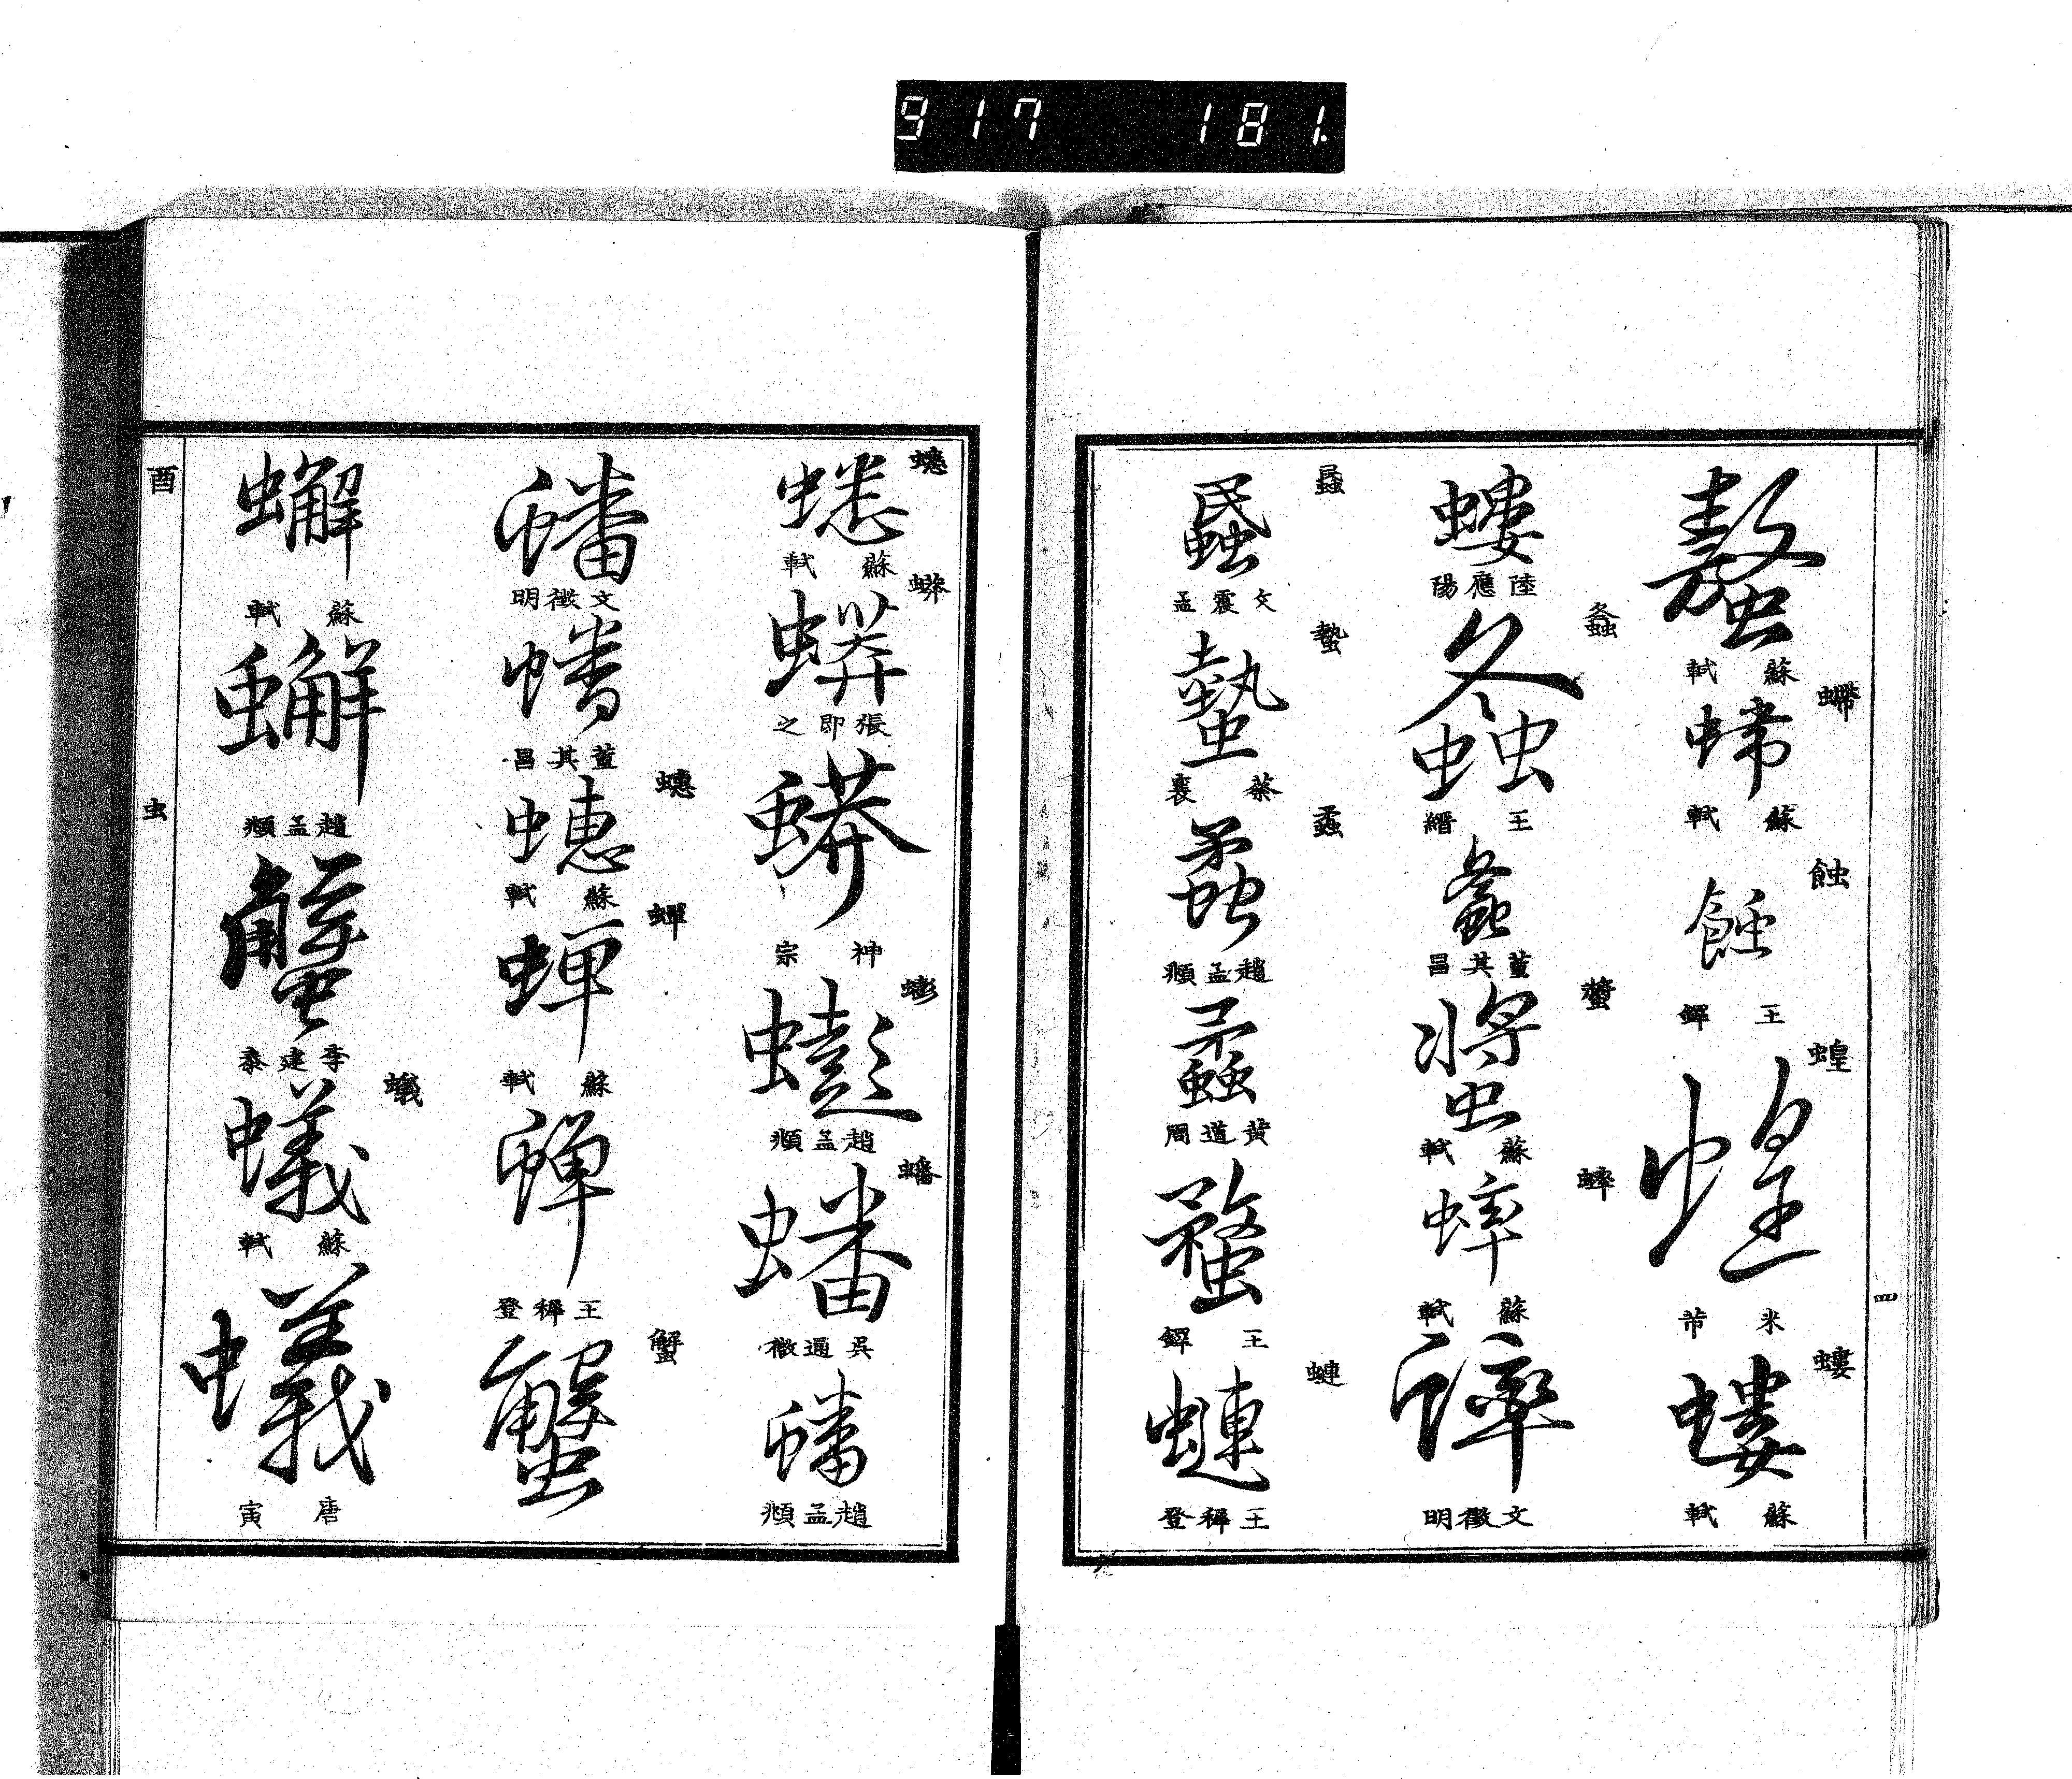 917 181.
螯
蘇軾
螮
螮
蘇軾
蝕
蝕
王鐸
蝗
蝗
米芾
螻
螻
蘇軾
四
螻
陸應陽
螽
螽
王縉
螽
董其昌
螿
螿
蘇軾
蟀
蟀
蘇軾
蟀
文徵明
蟁
蟁
文震孟
蟄
蟄
蔡襄
蟊
蟊
趙孟頫
蟊
黃道周
蝥
王鐸
螹
王穉登
蟋
蟋
蘇軾
蟒
蟒
張即之
蟒
神宗
蟛
蟛
趙孟頫
蟠
蟠
吳通微
蟠
趙孟頫
蟠
文徵明
蟠
董其昌
蟪
蟪
蘇軾
蟬
蟬
蘇軾
蟬
王穉登
蟹
蟹
蠏
蘇軾
蠏
趙孟頫
蟹
李建泰
蟻
蟻
蘇軾
蟻
唐寅
酉
虫